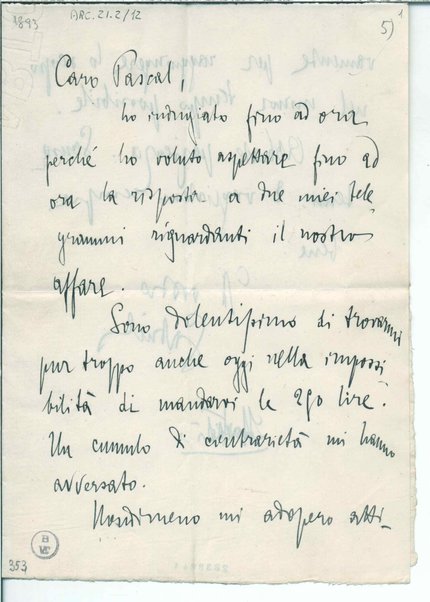 1893
ARC.21.2/12
5)
1
Caro Pascal,
ho indugiato fino ad ora
perché ho voluto aspettare fino ad
ora la risposta a due miei tele
grammi riguardanti il nostro
affare.
Sono dolentissimo di trovarmi
pur troppo anche oggi nella impossi
bilità di mandarvi le 290 lire.
Un cumulo di contrarietà mi hanno
avversato.
Nondimeno mi adopero atti-
353